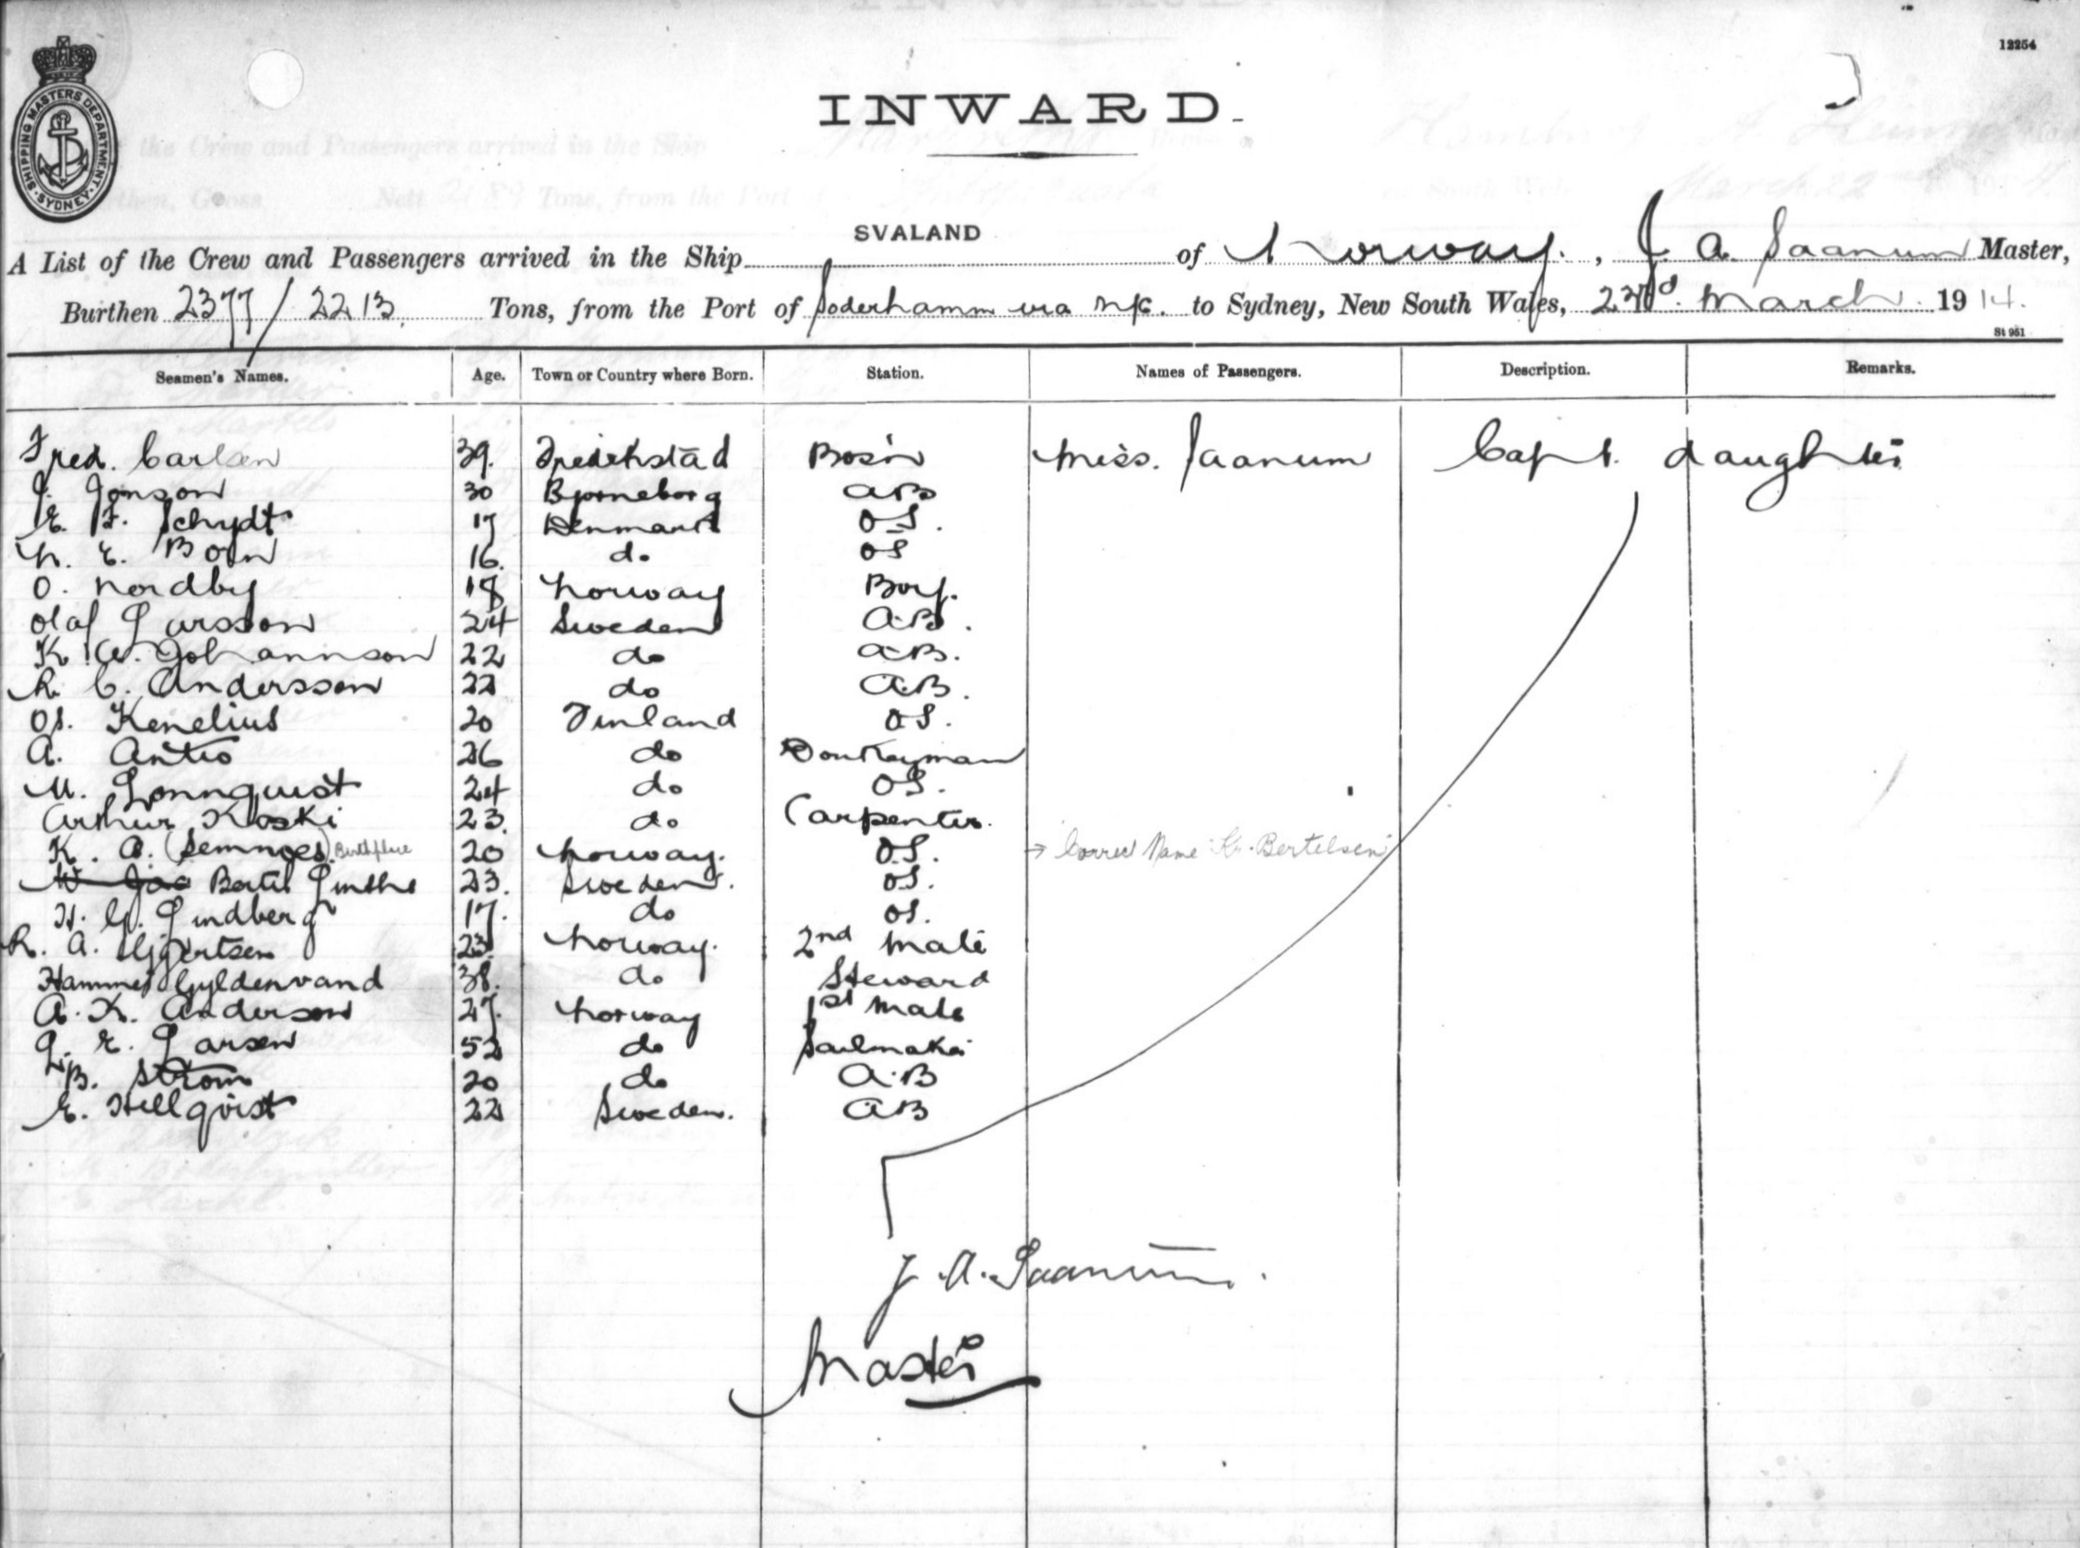 12254
INWARD
SHIPPING MASTERS DEPARTMENT SYDNEY
A List of the Crew and Passengers arrived in the Ship SVALAND of Norway, J. A. Saanum Master,
Burthen 2377/2213. Tons, from the Port of Soderhamm via to Sydney, New South Wales, 23rd March 1914.
St 961
Seamen's Names. Age. Town or Country where Born. Station. Names of Passengers. Description. Remarks.
Fred. Carlsen 39. Fredrikstad Bos'n Miss. Saanum Capt. daughter
J. Jonson 30 Bjorneborg AB
E. F. Schydt 17 Denmark O.S.
N. E. Born 16 do OS
O. Nordby 18 Norway Boy.
Olaf Larsson 24 Sweden A.B.
K. W. Johannson 22 do A.B.
R. C. Andersson 22 do A.B.
Os. Kenelius 20 Finland O.S.
A. Antio 26 do Donkeyman
U. Lonnquist 24 do O.S.
Arthur Koski 23. do Carpenter.
K. A. (Semnoes) Birthplace 20 Norway. O.S. → Correct Name Kr. Bertelsen
Bertil 23. Sweden. O.S.
H. G. Lindberg 17. do O.S.
R. A. Gjertsen 23 Norway. 2nd Mate
Hammes Gyldenvand 38. do Steward
A. K. Anderson 27. Norway 1st Mate
L. E. Larsen 52 do Sailmaker
B. Strom 20 do A.B
E. Hellqvist 22 Sweden. AB
J. A. Saanum.
Master